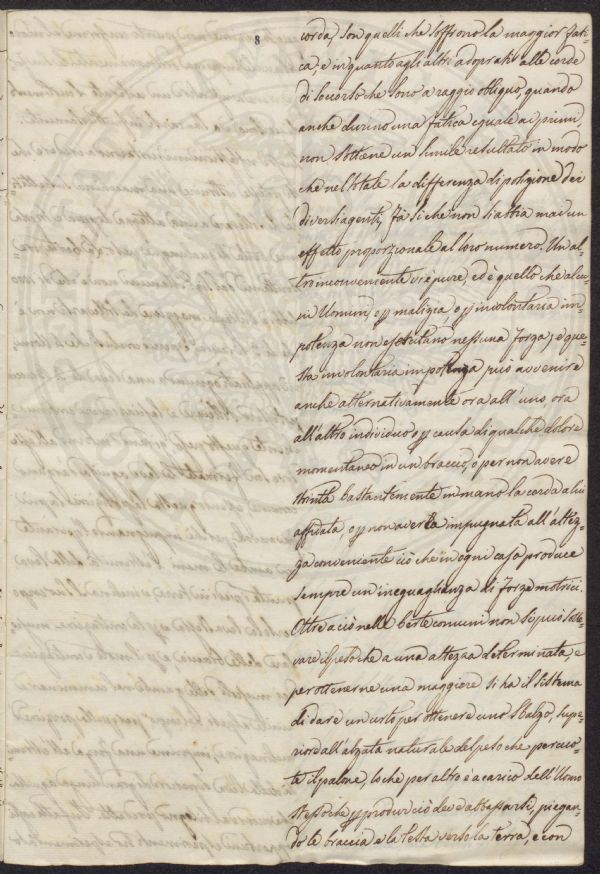 8
corda, son quelli che soffrono la maggior fati-
ca, e in quanto agli altri adoprati alle corde
di soccorso che sono a raggio obliquo, quando
anche durino una fatica eguale ai primi,
non s'ottiene un simile resultato in modo
che nel totale la differenza di posizione dei
diversi agenti, fa sì che non si abbia mai un
effetto proporzionale al loro numero. Un al-
tro inconveniente vi è pure, ed è quello che alcu-
ni Uomini, o p malizia, o p involontaria im-
potenza non esercitano nessuna forza, e que-
sta involontaria impotenza può avvenire
anche alternativamente ora all'uno, ora
all'altro individuo o p causa di qualche dolore
momentaneo in un braccio, o per non avere
strinta bastantemente in mano la corda a lui
affidata, o p non averla impugnata all'altez-
za conveniente ciò che in ogni caso produce
sempre un ineguaglianza di forze motrici.
Oltre a ciò nelle berte comuni non si può solle-
vare il peso che a una altezza determinata, e
per ottenerne una maggiore si ha il sistema
di dare un urto per ottenere uno sbalzo, supe-
riore all'alzata naturale del peso che percuo-
te il palone, lo che per altro è a carico dell'Uomo
stesso che p produr ciò deve abbassarsi, piegan-
do le braccia e la testa verso la terra, e con